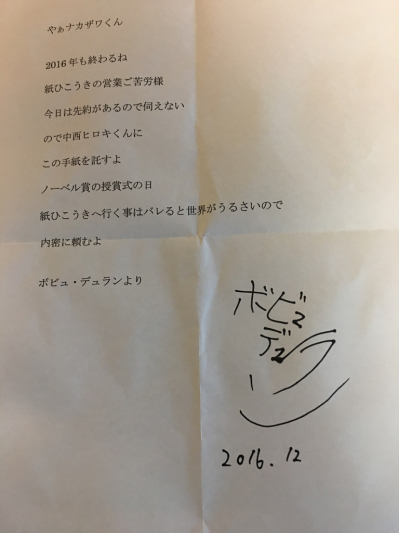 やぁナカザワくん
2016年も終わるね
紙ひこうきの営業ご苦労様
今日は先約があるので伺えない
ので中西ヒロキくんに
この手紙を託すよ
ノーベル賞の授賞式の日
紙ひこうきへ行く事はバレると世界がうるさいので
内密に頼むよ
ボビュ・デュランより
ボビュ
デュラン
2016.12